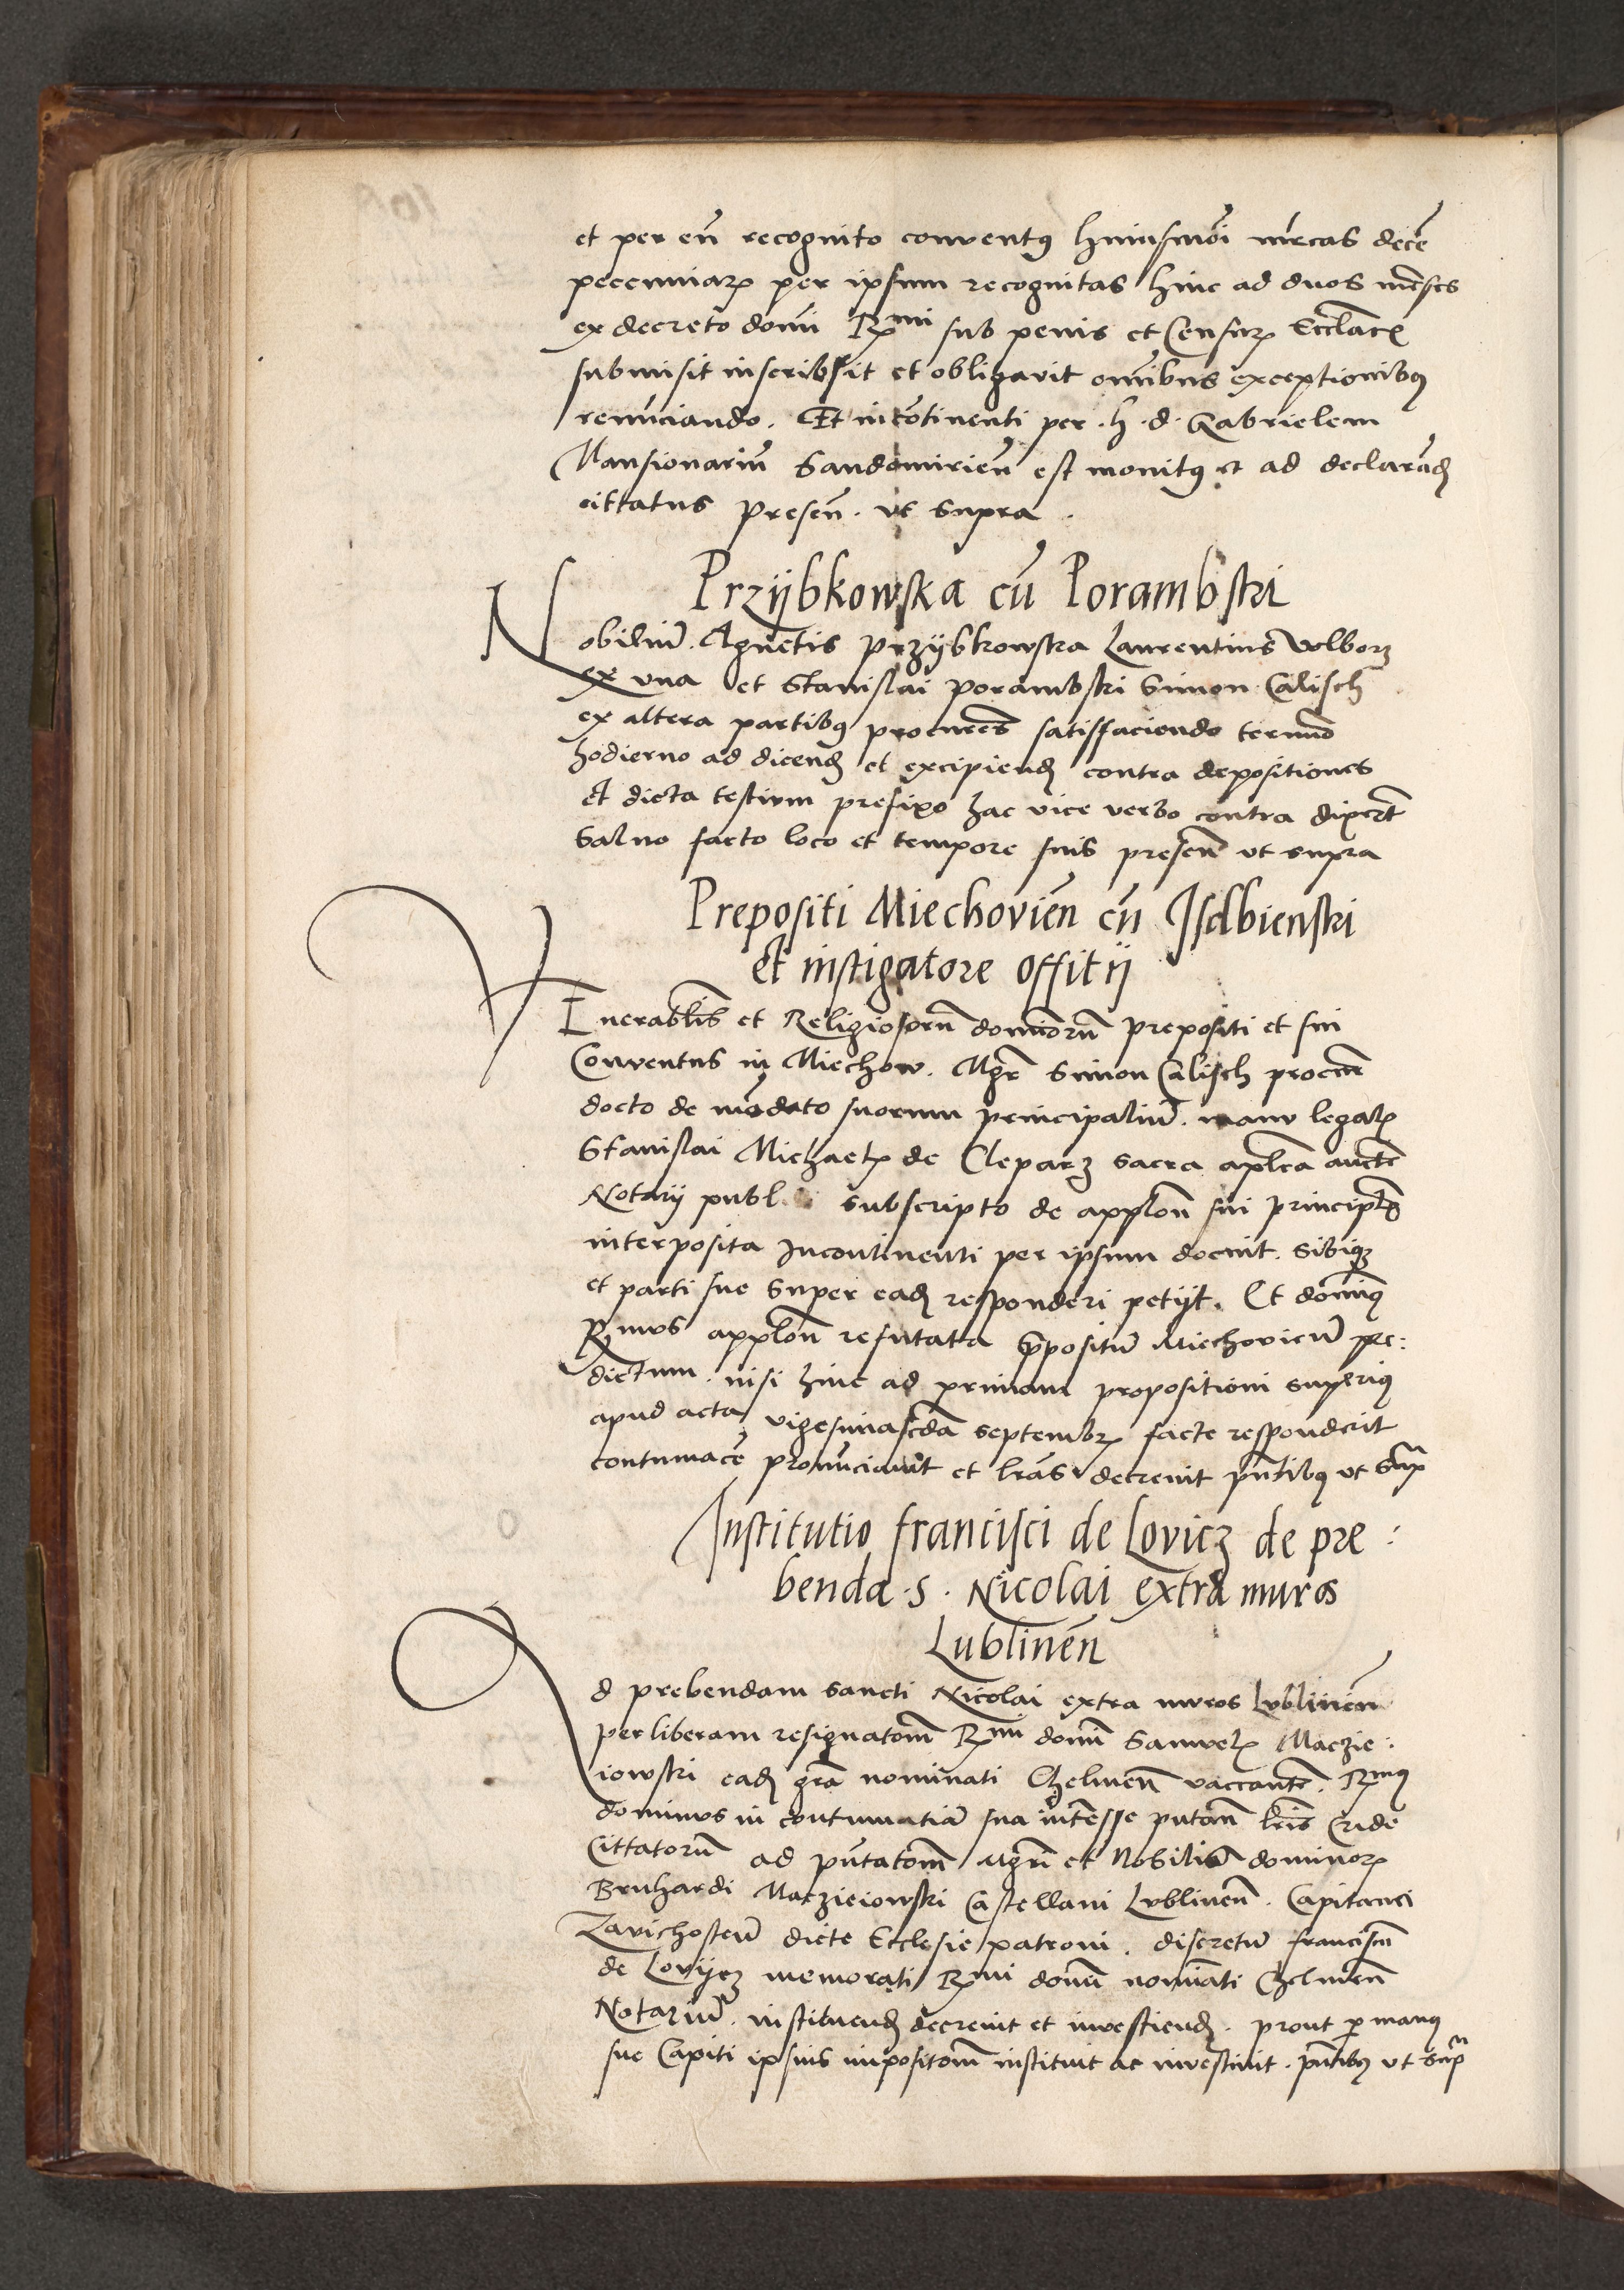 et per eũ recognito conventꝯ huiusmõi mrcas decẽ
pecuniarꝝ per ipsum recognitas hinc ad duos mẽses
ex decreto domi Rmi sub penis et Censurꝝ Ecclãcꝫ
submisit inscribsit et obligavit omĩbus exceptionibꝯ
renũciando. Et incõtinenti per .h.d. Gabrielem
Mansionariũ Sandomirieñ est monitꝯ et ad declarãdꝫ
cittatus preseñ. ut supra.
Przÿbkowska cũ Porambski
Nobiliũ. Agnetis Przÿbkowska Laurentius Volborz
ex una et Stanislai Porambski Simon Calisch
ex altera partibꝯ procurẽs satisfaciendo termĩo
hodierno ad dicendꝫ et excipiendꝫ contra depositiones
et dicta testium prefixo hac vice verbo contra dixert̃
Salvo facto loco et tempore suis preseñ ut supra
Prepositi Miechovieñ cũ Isdbienski
et instigatore offitÿ
VEnerabl̃is et Religiosorũ dominorũ prepositi et sui
Conventus in Miechow. Mgr̃ Simon Calisch procur̃
docto de mãdato suorum principaliũ. manu legalꝝ
Stanislai Michaelꝝ de Cleparz sacra aplĩca aucte
Notarÿ publ. subscripto de apploñ sui principlĩs
interposita Incontinenti per ipsum docuit. sibiqꝫ
et parti sue super eadꝫ responderi petÿt. Et domĩꝯ
Rmus apploñ refutata p̃positũ Miechovieñ pre:
dictum. nisi hinc ad primam propositioni superiꝯ
apud acta vigesimascda septembrꝫ facte responderit
contumacẽ pronũciavit et lr̃as decrevit pñtibꝯ ut Supr
Institutio francisci de Lovicz de pre:
benda .s. Nicolai extra muros
Lublineñ
Ad prebendam sancti Nicolai extra muros Lublineñ
per liberam resignatom̃ Rmi domĩ Samuelꝝ Maczie:
iowski eadꝫ gr̃a nominati Chelmeñ vaccantẽ. Rmꝯ
dominus in contumatiã sua interesse putañ lr̃is Cride
Cittatorũ ad pñtatom̃ Mgri et Nobiliũ dominorꝝ
Bernhardi Macziejowski Castellani Lublineñ. Capitanei
Zavichosteñ dicte Ecclesie patroni. discretũ franciscũ
de Lovÿcz memorati Rmi domĩ nomĩati Chelmeñ
Notariũ. instituendꝫ decrevit et investiendꝫ. prout ꝑ manꝯ
sue Capiti ipsius impositom̃ instituit ac investivit. pñtibꝯ ut Supr